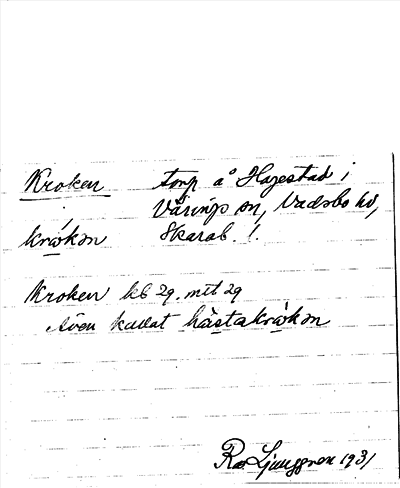 Kroken torp å Hagestad i
Värings sn, Vadsbo hd,
krωkən Skarab. l.
Kroken kb 29. mtl 29
Även kallat hästakrωkən
R. Ljunggren 1931